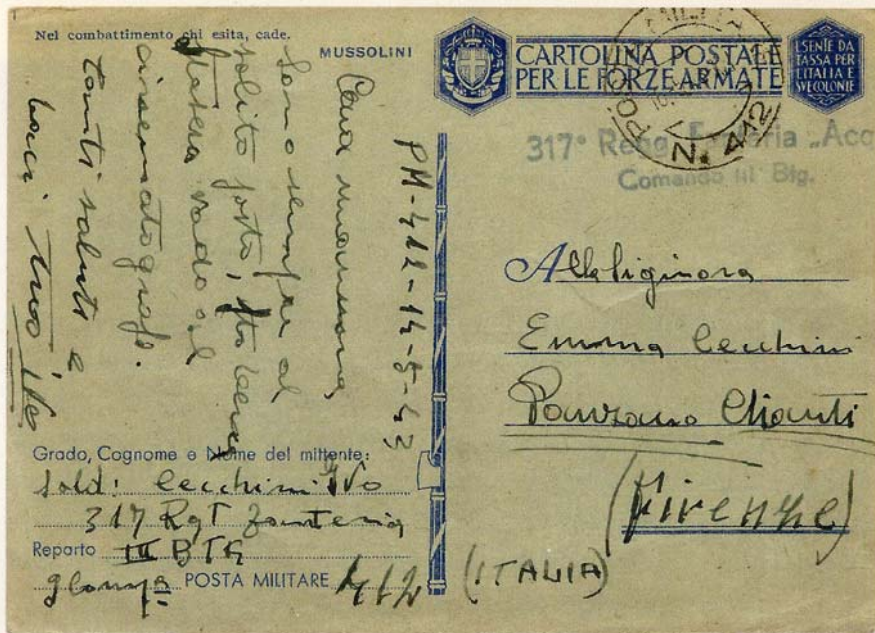 Nel combattimento chi esita, cade.
MUSSOLINI
CARTOLINA POSTALE
PER LE FORZE ARMATE
ESENTE DA
TASSA PER
L'ITALIA E
SVE COLONIE
POSTA MILITARE
N. 412
317° Regg. Fanteria „Acq
Comando III Btg.
PM-412-14-5-43
Cara mamma,
sono sempre al
solito posto, sto bene
stasera vado al
cinematografo.
Tanti saluti e
baci tuo Ivo
Alla Signora
Emma Cecchini
Panzano Chianti
(Firenze)
(ITALIA)
Grado, Cognome e Nome del mittente:
Sold: Cecchini Ivo
317 Rgt fanteria
Reparto III BTG
POSTA MILITARE 412